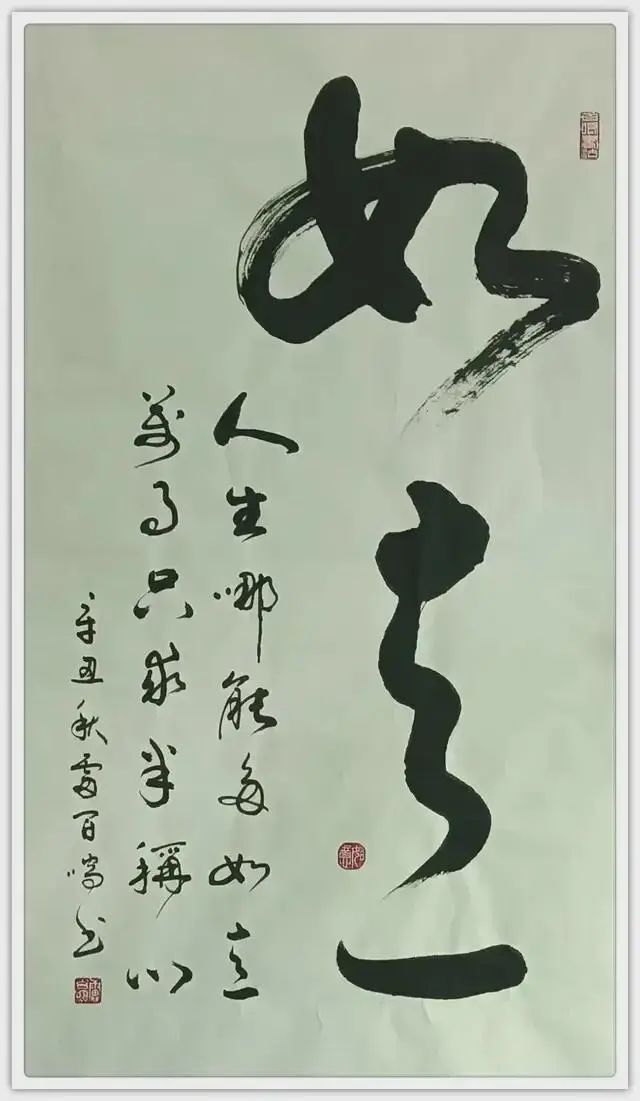 如意
人生哪能多如意
萬事只求半稱心
辛丑秋雷百鸣书